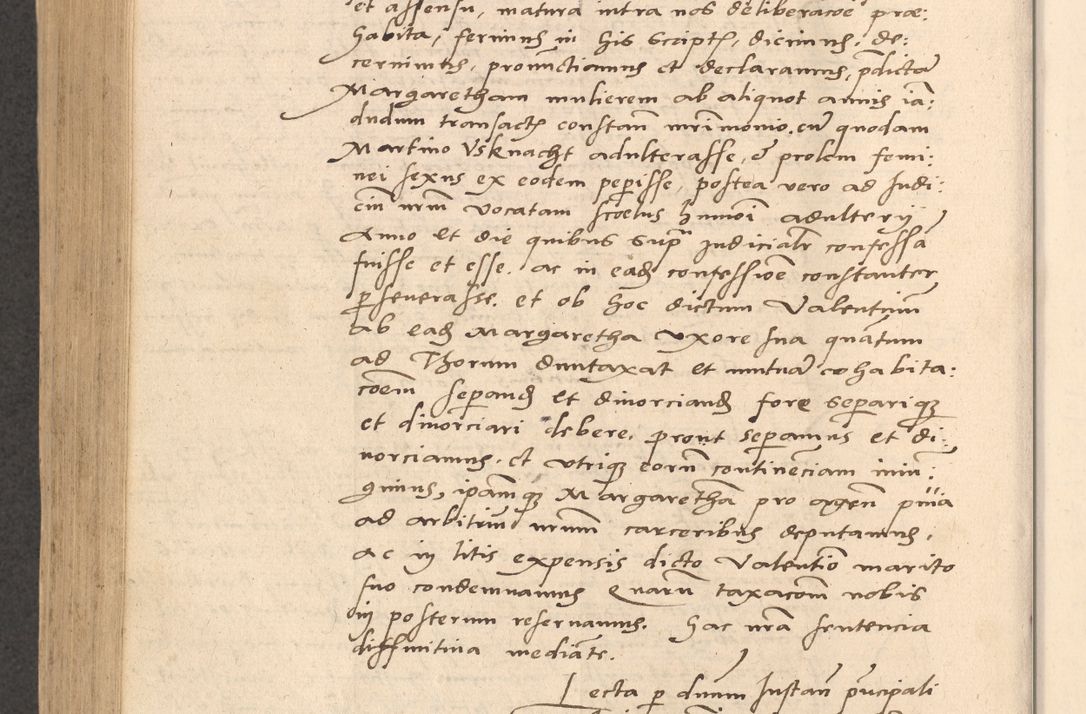 et assensu, matura intra nos deliberacoe præ:
habita, ferimus in his script, dicimus, de:
cernimus, pronunctiamus et declaramus, pdictā
Margaretham mulierem ab aliquot annis iā:
dudum transact constan mrimonio, cū quodam
Martino Vsknacht adulterasse, & prolem femi:
nei sexus ex eodem peperisse, postea vero ad Judi:
ciū nrm vocatam scelus hmōi adulterij
Anno et die quibus supra Judicialr confessā
fuisse et esse, ac in ead confessiōe constanter
pseuerasse, et ob hoc dictum Valentinū
ab ead Margaretha vxore sua quātum
ad Thorum duntaxat et mutuā cohabita:
cōem sepand et diuorciand fore separiq
et diuorciari debere, prout separamus et di:
uorciamus, et vtriq eorū continēciam iniū:
gimus, ipamq Margarethā pro agen pnia
ad arbitriū nrum carceribus deputamus,
ac in litis expensis dicto Valentio marito
suo condemnamus Quarū taxacōm nobis
in posterum reseruamus. Hac nra sentencia
diffinitiua mediāte.
Lecta p dnum Instan principali